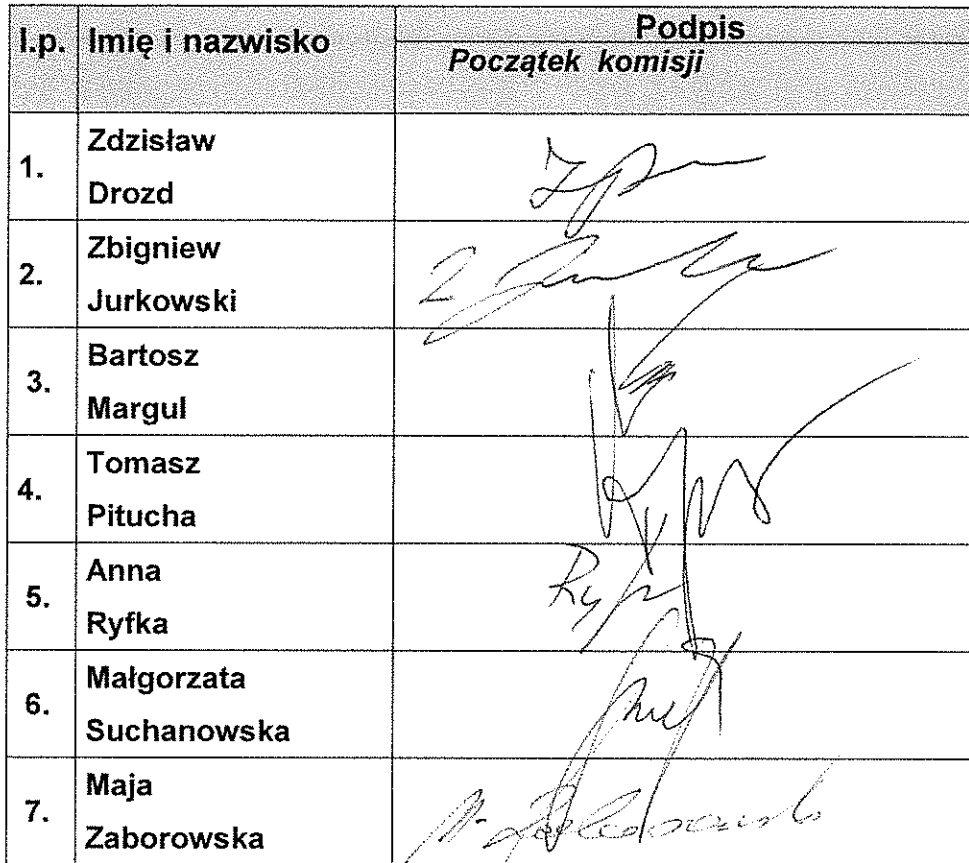 l.p. Imię i nazwisko Podpis
Początek komisji
1. Zdzisław
Drozd
2. Zbigniew
Jurkowski
3. Bartosz
Margul
4. Tomasz
Pitucha
5. Anna
Ryfka
6. Małgorzata
Suchanowska
7. Maja
Zaborowska